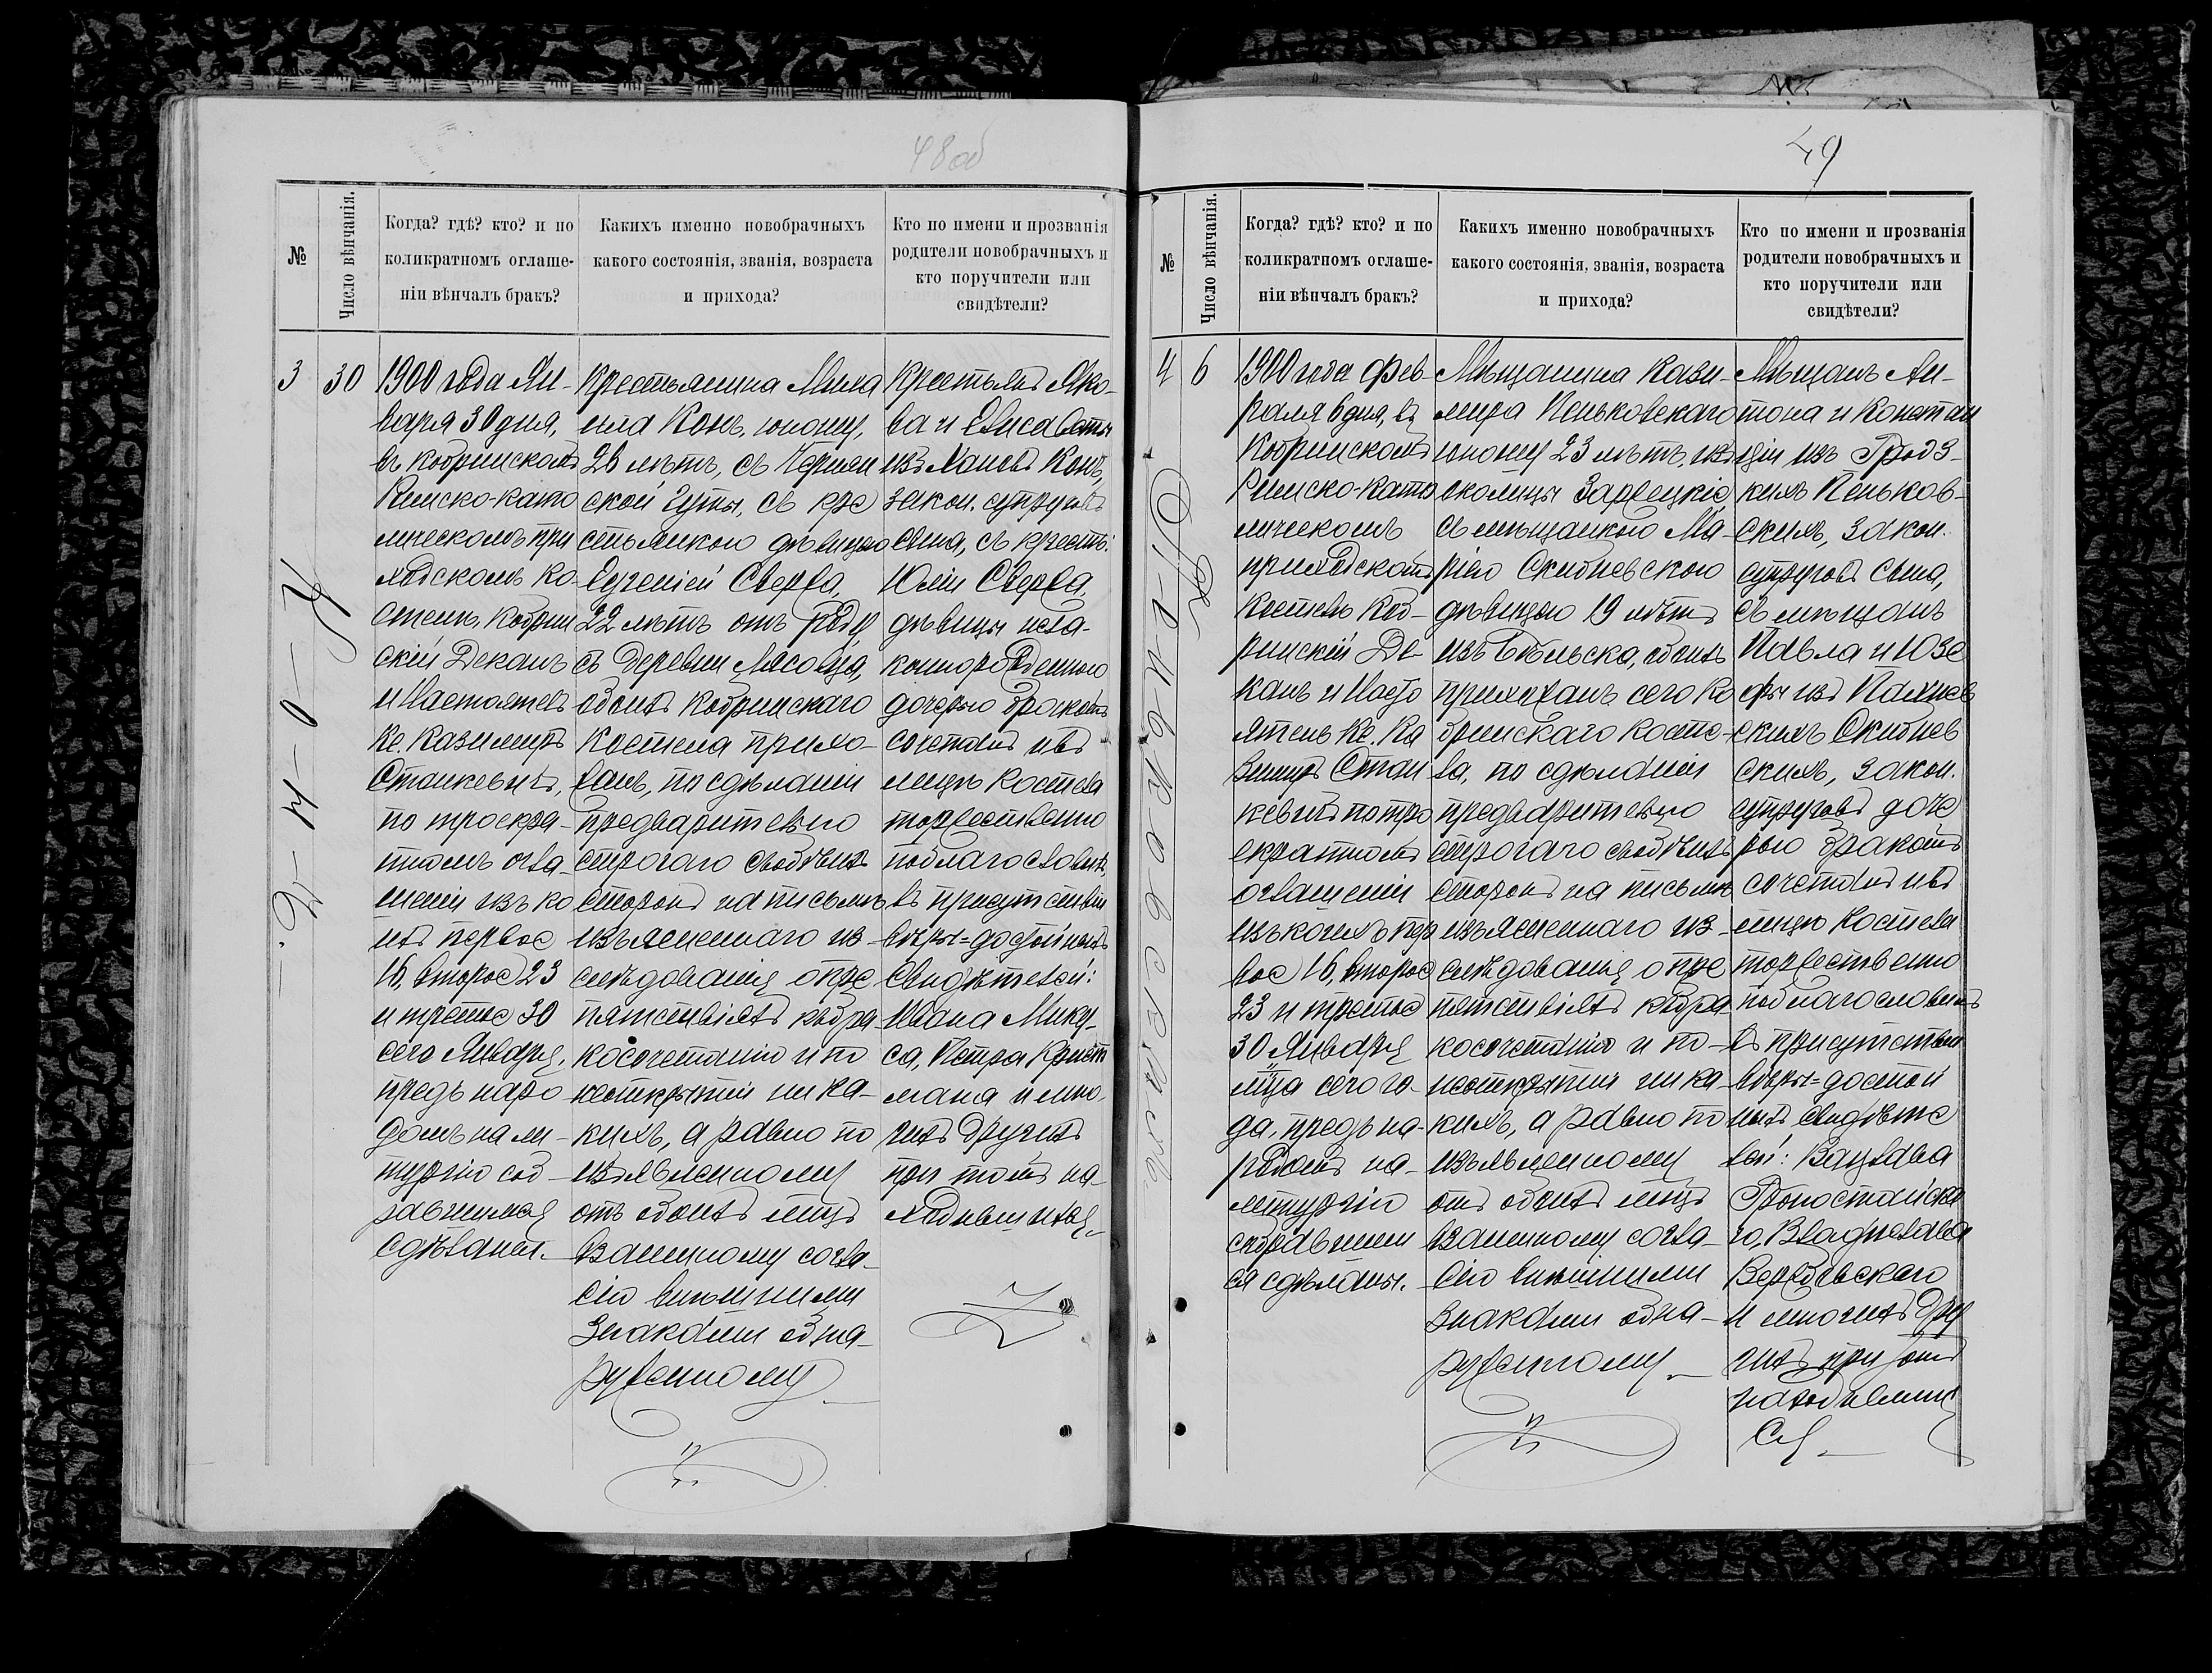 48об
№
Число вѣнчанія.
Когда? гдѣ? кто? и по
коликратномъ оглаше-
ніи вѣнчалъ бракъ?
Какихъ именно новобрачныхъ
какого состоянія, званія, возраста
и прихода?
Кто по имени и прозванія
родители новобрачныхъ и
кто поручители или
свидѣтели?
3
30
1900 года Ян-
варя 30 дня,
въ Кобринскомъ
Римско-като
лическомъ при
ходскомъ ко-
стелѣ, Кобрин
скій Деканъ
и Настоятель
Кс. Казимиръ
Станкевичъ,
по троекра-
тномъ огла-
шеніи изъ ко
ихъ первое
16, второе 23
и третье 30
сего Января,
предъ наро
домъ на ли-
тургію соб-
равшимся
сдѣланы.
Крестьянина Миха
ила Конъ, юношу,
26 лѣтъ, съ Черня
ской Гуты, съ кре
стьянкою дѣвицею
Евгеніей Сверба,
22 лѣтъ отъ роду
съ деревни Лясовца,
обоихъ Кобринскаго
костела прихо-
жанъ, по сдѣланіи
предварительно
строгаго съ обѣихъ
сторонъ на письмѣ
изъясненнаго из-
слѣдованія о пре
пятствіяхъ къ бра
косочетанію и по
неоткрытіи ника-
кихъ, а равно по
изъявленному
отъ обоихъ лицъ
взаимному согла-
сію внѣшними
знаками обна-
руженному
Крестьянъ Яко-
ва и Елисаветы
изъ Конъ,
закон. супруговъ
сына, съ крестьян.
Юліи Сверба,
дѣвицы неза-
коннорожденною
дочерью бракомъ
сочеталъ и въ
лицѣ костела
торжественно
поблагословилъ,
въ присутствіи
вѣры=достойныхъ
свидѣтелей:
Ивана Мику-
са, Петра
и мно-
гихъ другихъ
при томъ на-
ходившихся.
49
№
Число вѣнчанія.
Когда? гдѣ? кто? и по
коликратномъ оглаше-
ніи вѣнчалъ бракъ?
Какихъ именно новобрачныхъ
какого состоянія, званія, возраста
и прихода?
Кто по имени и прозванія
родители новобрачныхъ и
кто поручители или
свидѣтели?
4
6
1900 года Фев-
раля 6 дня, въ
Кобринскомъ
Римско-като
лическомъ
приходскомъ
костелѣ Коб-
ринскій Де-
канъ и Насто
ятель Кс. Ка
зимиръ Стан
кевичъ по тро
екратномъ
оглашеніи
изъ коихъ пер
вое 16, второе
23 и третье
30 Января
м̃ца сего го-
да, предъ на-
родомъ на
литургію
собравшим
ся сдѣланы.
Мѣщанина Кази-
мира Пеньковскаго
юношу 23 лѣтъ, изъ
околицы Зарѣцкіе,
съ мѣщанкою Ма-
ріею Скибневскою
дѣвицею 19 лѣтъ
изъ обоихъ
прихожанъ сего Ко
бринскаго косте-
ла, по сдѣланіи
предварительно
строгаго съ обѣихъ
сторонъ на письмѣ
изъясненнаго из-
слѣдованія о пре
пятствіяхъ къ бра
косочетанію и по-
неоткрытіи ника-
кихъ, а равно по
изъявленному
отъ обоихъ лицъ
взаимному согла-
сію внѣшними
знаками обна-
руженному
Мѣщанъ Ан-
тона и Констан
ціи изъ Гродз-
кихъ Пеньков-
скихъ, закон.
супруговъ сына,
съ мѣщанъ
Павла и Юзе
фы изъ
скихъ Скибнев
скихъ, закон.
супруговъ доче
рью бракомъ
сочеталъ и въ
лицѣ костела
торжественно
поблагословилъ
въ присутствіи
вѣры=достой
ныхъ свидѣте
лей: Вацлава
Гроностайска
го, Владислава
Вержбовскаго
и многихъ дру
гихъ при томъ
находивших
ся